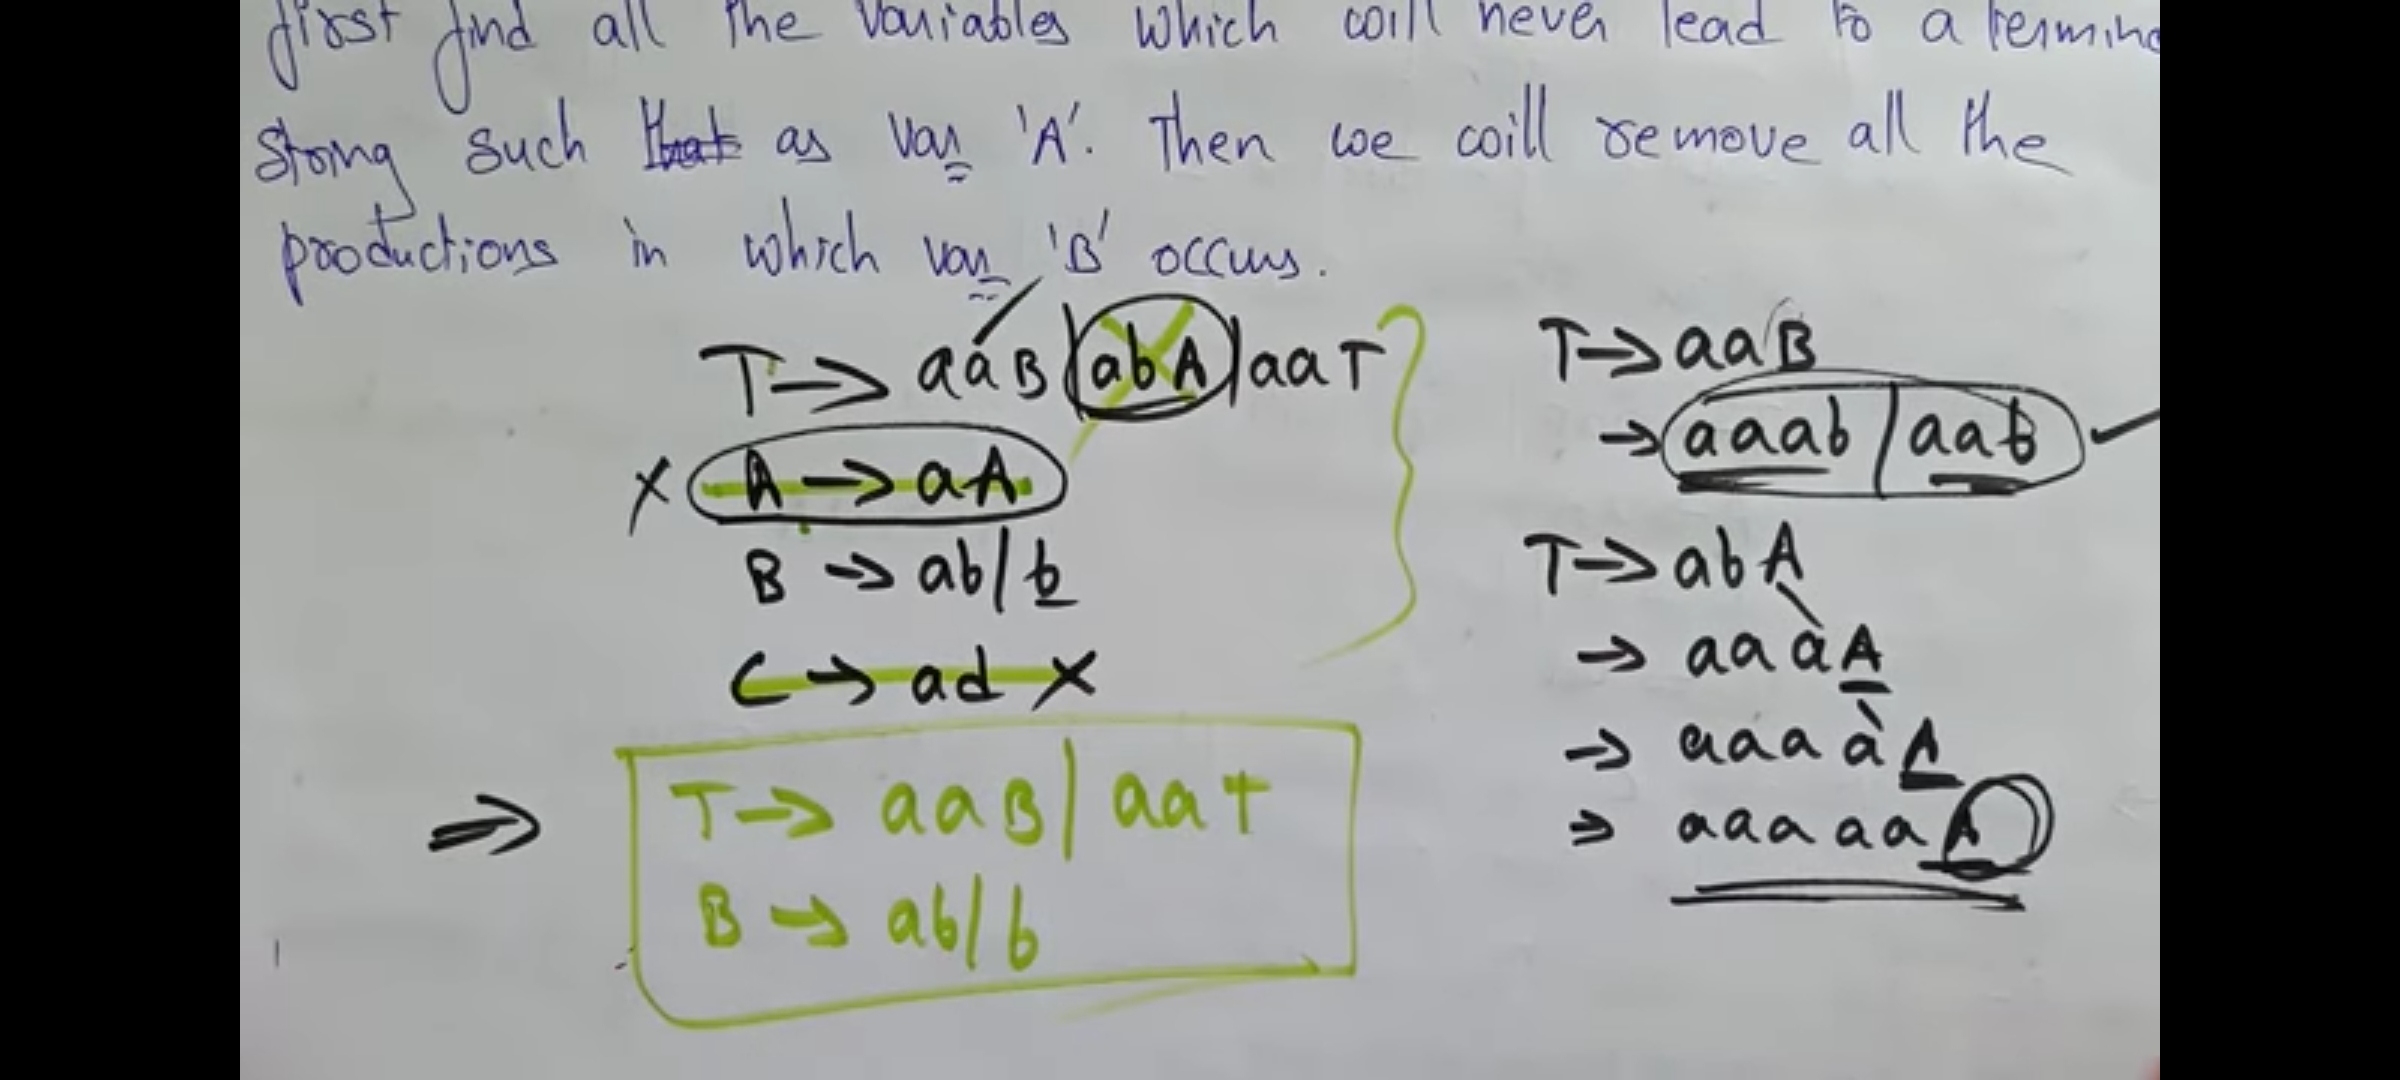 first find all the variables which will never lead to a termina
string such that as var 'A'. Then we will remove all the
productions in which var 'B' occurs.
T → aaB | abA | aaT
X A → aA
B → ab/b
C → ad X
⇒ T → aaB | aaT
B → ab/b
T → aaB
→ aaab / aab ✓
T → abA
→ aaaA
→ aaaaA
→ aaaaaA